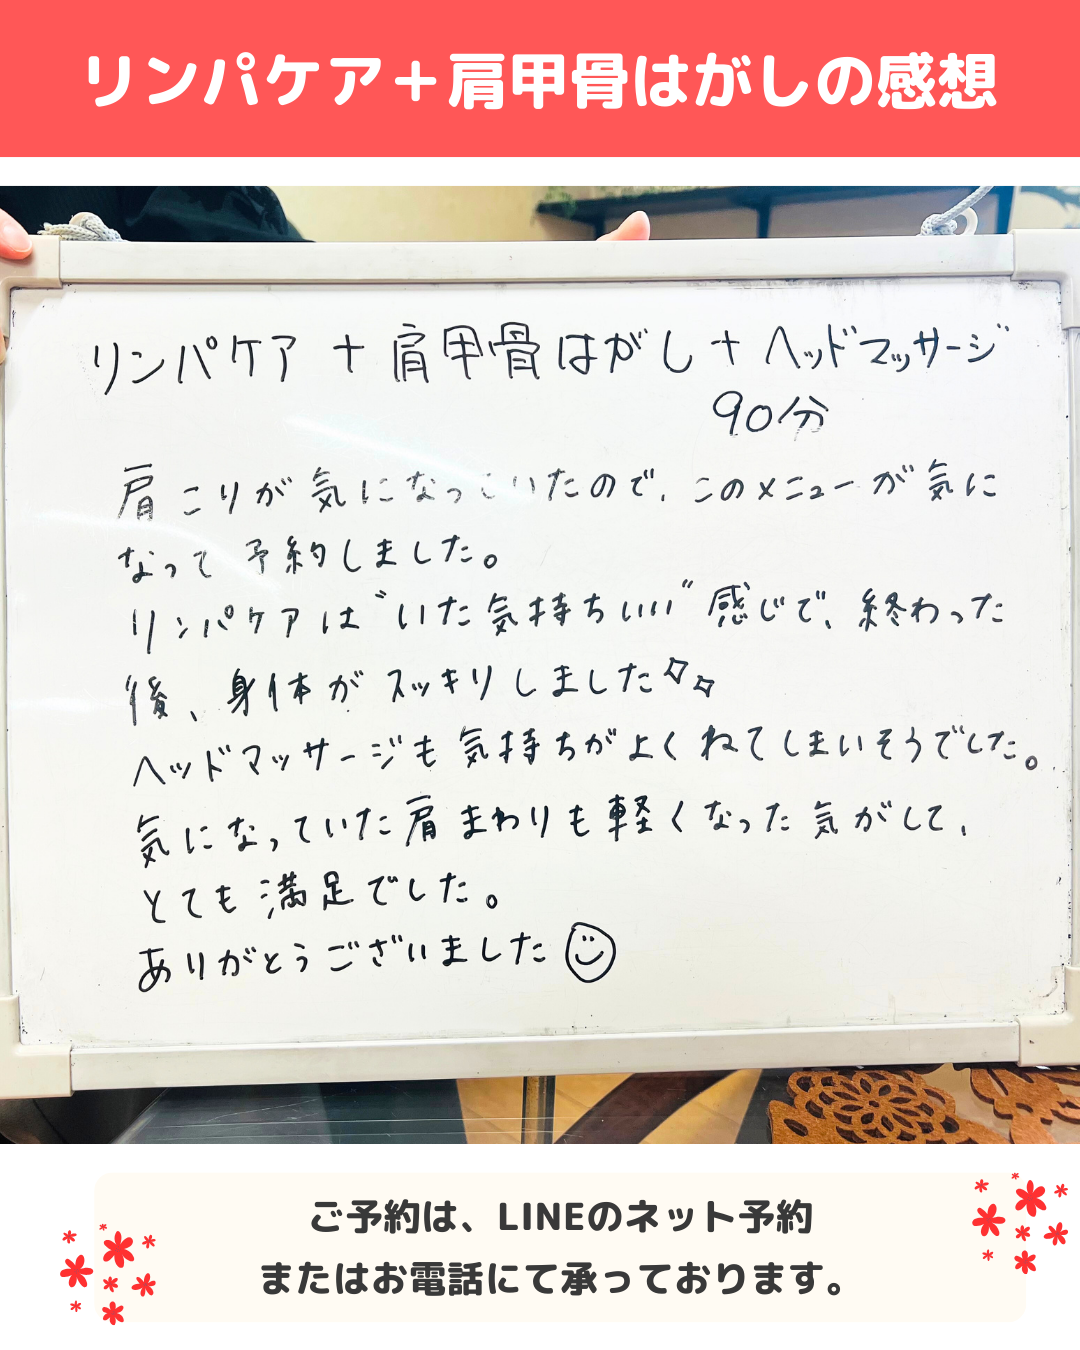 リンパケア＋肩甲骨はがしの感想
リンパケア + 肩甲骨はがし + ヘッドマッサージ
90分
肩こりが気になっていたので、このメニューが気に
なって予約しました。
リンパケアは"いた気持ちいい"感じで、終わった
後、身体がスッキリしました
ヘッドマッサージも気持ちがよくねてしまいそうでした。
気になっていた肩まわりも軽くなった気がして、
とても満足でした。
ありがとうございました
ご予約は、LINEのネット予約
またはお電話にて承っております。